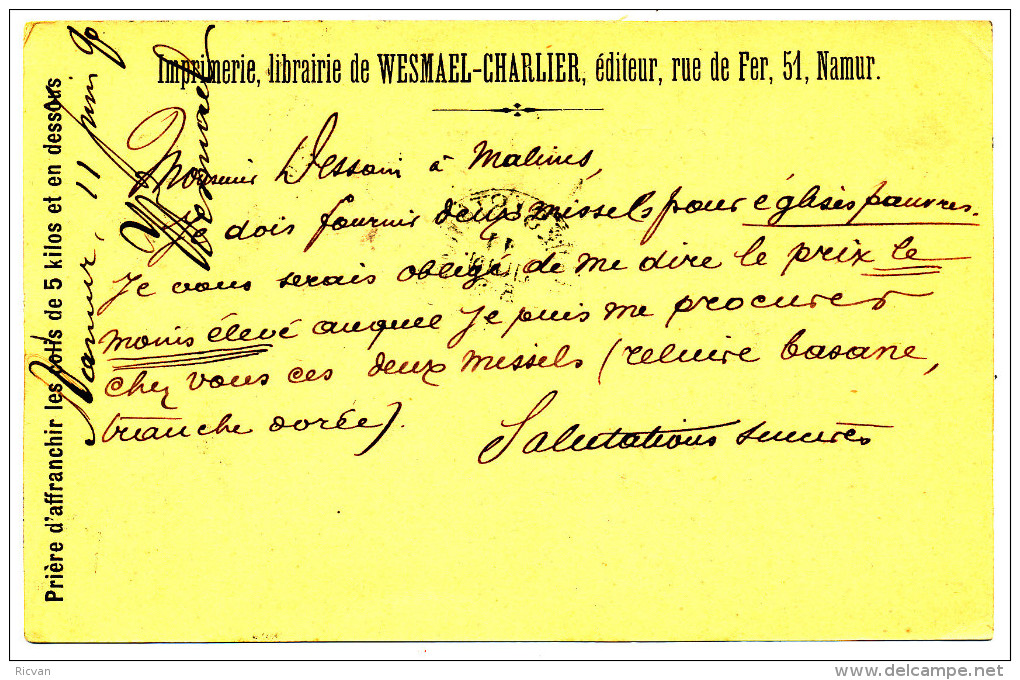 Imprimerie, librairie de WESMAEL-CHARLIER, éditeur, rue de Fer, 51, Namur.
Prière d'affranchir les colis de 5 kilos et en dessous
Namur, 11 juin 90
Wesmael
Monsieur Dessain à Malines,
Je dois fournir deux missels pour églises pauvres.
Je vous serais obligé de me dire le prix le
moins élevé auquel je puis me procurer
chez vous ces deux missels (reliure basane,
tranche dorée).
Salutations sincères
Ricvan
www.delcampe.net